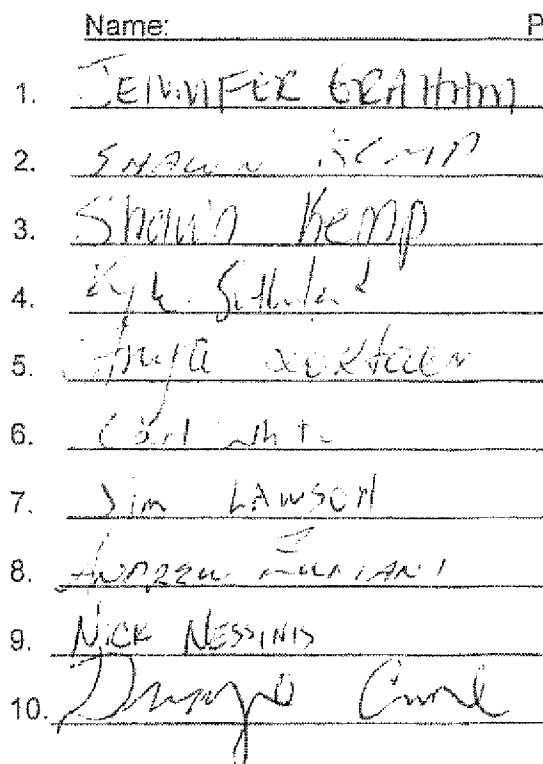 Name: P
1. JENNIFER GRAHAM
2. SHAWN KEMP
3. Shawn Kemp
4. Kyle
5. Anya
6. Carl White
7. Jim LAWSON
8. ANDREW
9. NICK NESSINIS
10.